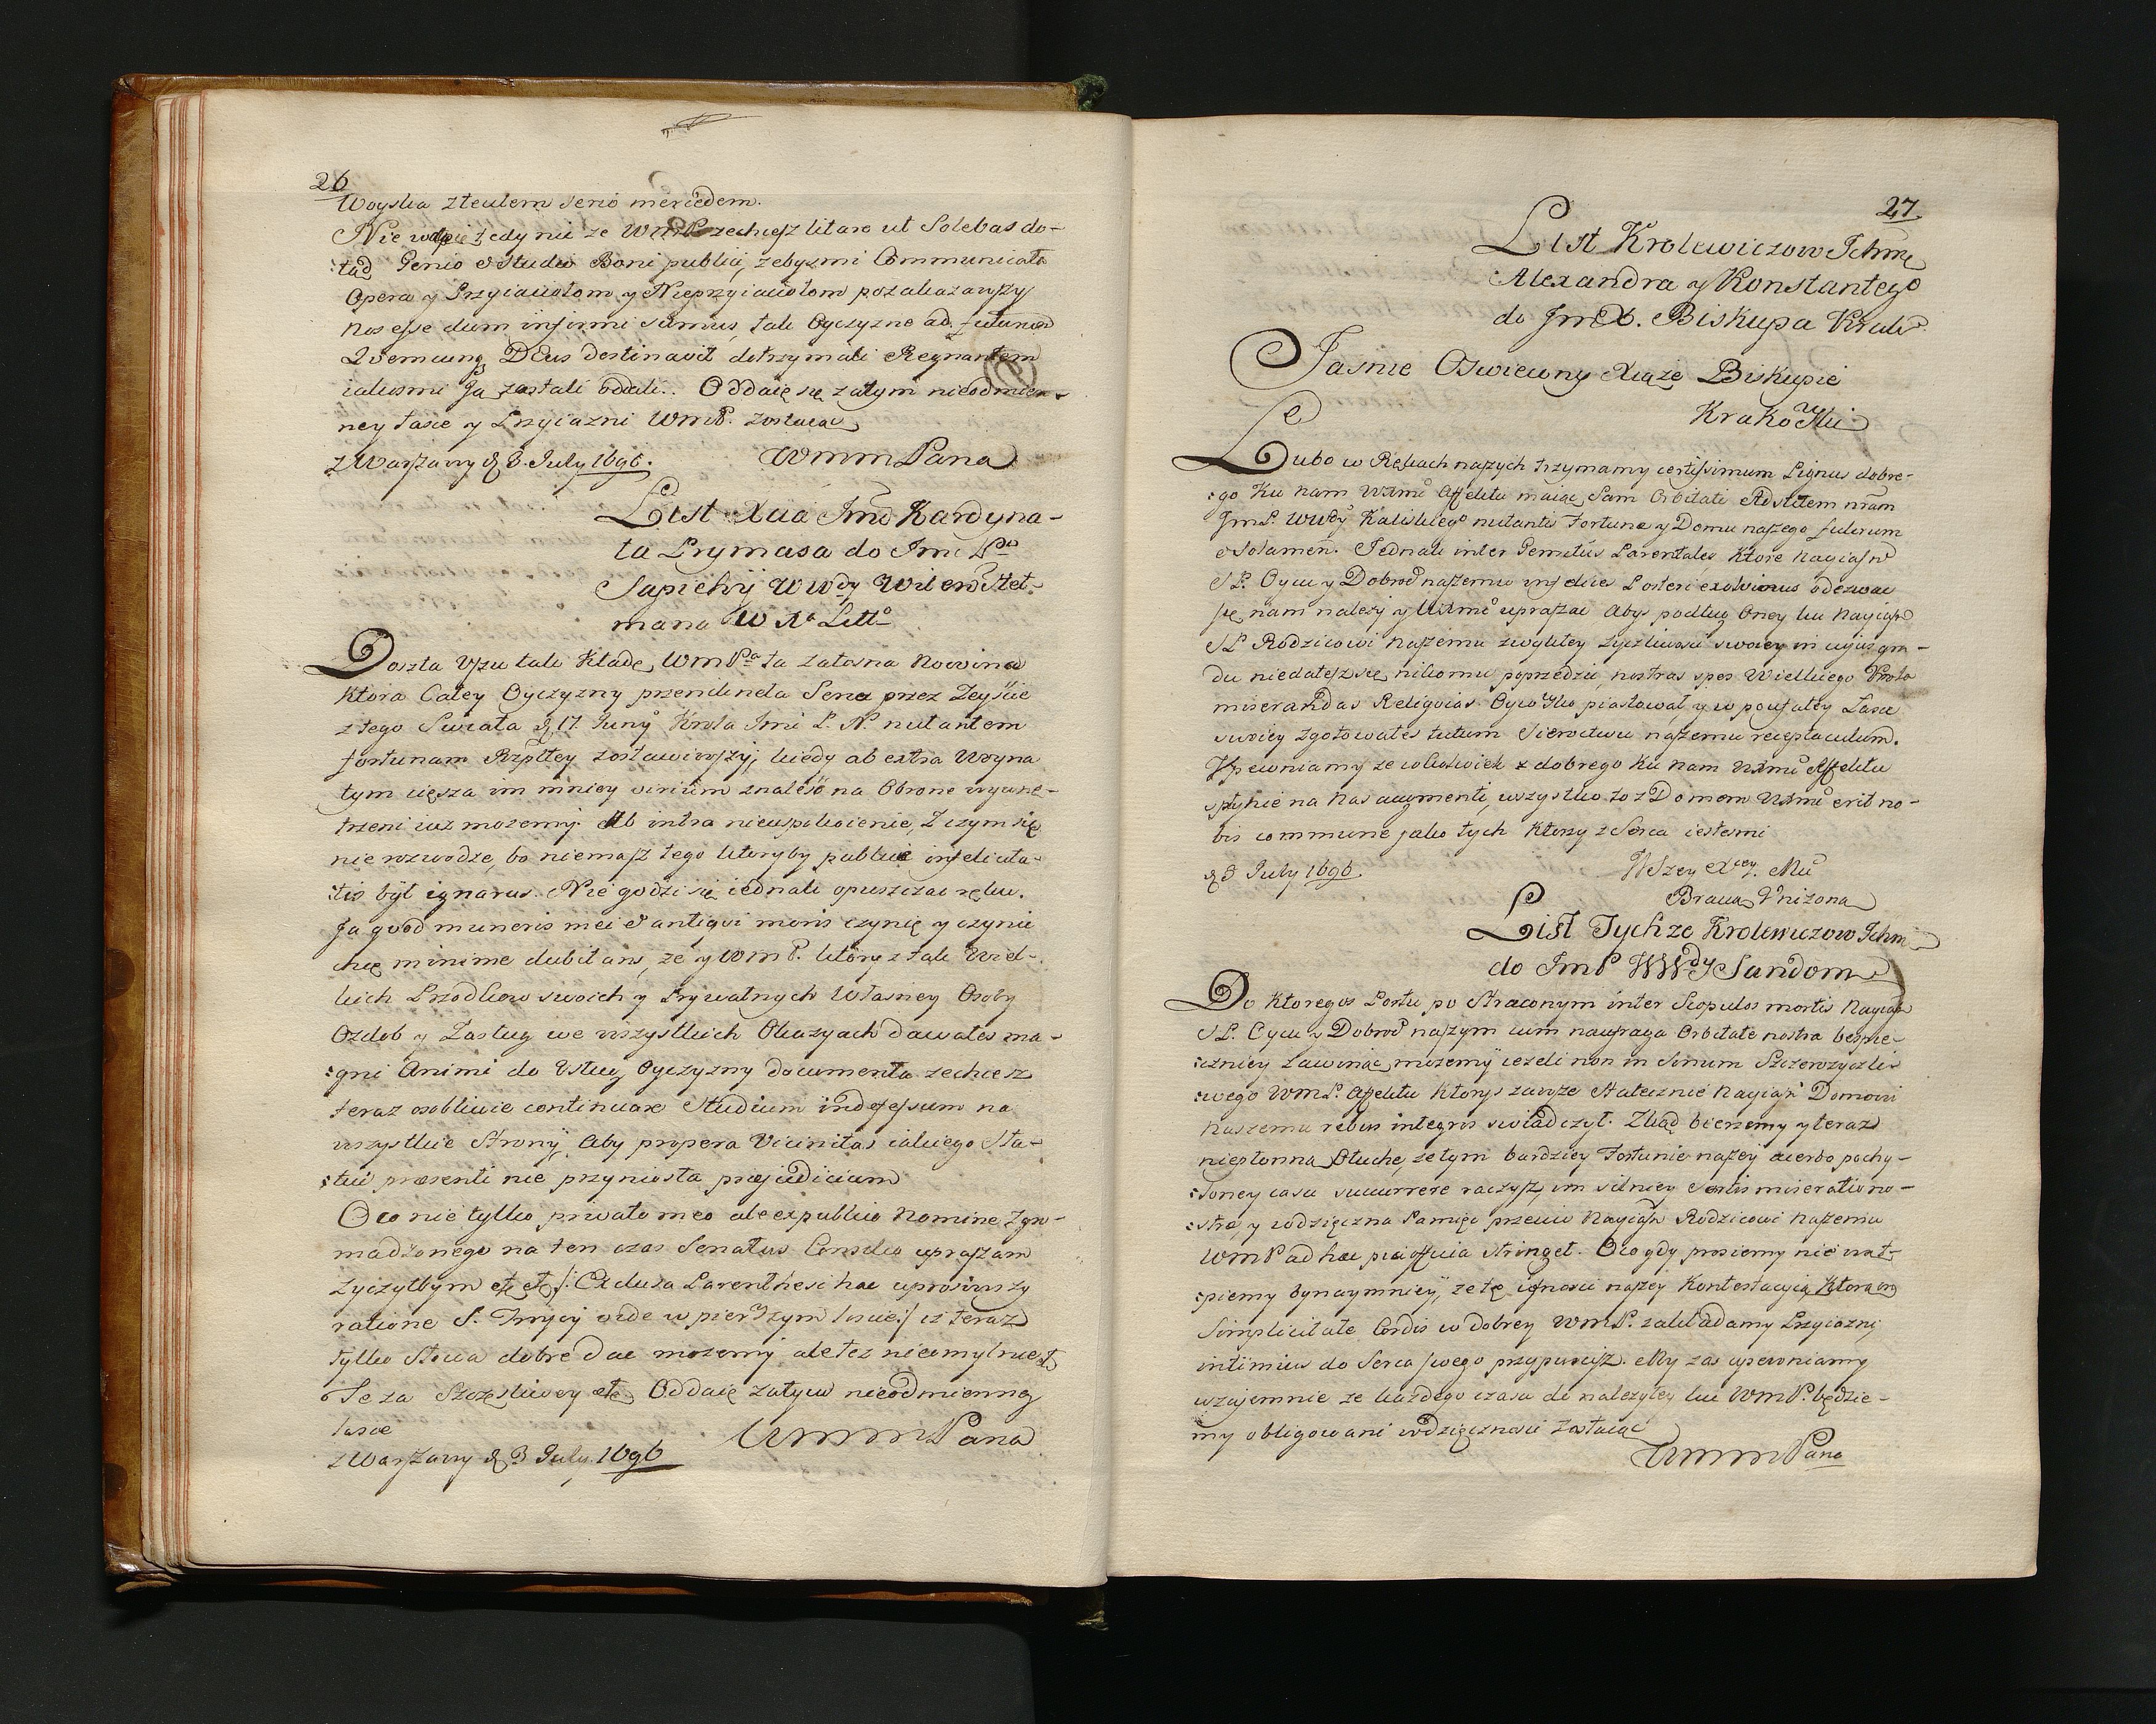 26
Woyska z teulem serio mercedem.
Nie wątpię tedy nic ze WmP zechcesz litare ut Solebas do-
:tąd Genio et studio Boni publici, zebysmi Communicata
Opera y Przyiaciołom y Nieprzyiaciołom pozakazawszy
Nos esse dum infirmi sumus, tak Oyczyzne ad futurum
Quemcunq Deus destinavit dotrzymali Regnantem
iakosmi Ją zastali oddali. Oddaię się zatym nieodmien-
ney łasce y Przyiazni WmP. zostaiąc
z Warszawy d 3. July 1696. WmmPana
List Xcia Jmci Kardyna-
ła Prymasa do Jmci Pa
Sapiehij WWdy Wilen Het-
mana W Xa Litto
Doszła Vszu tak Kładę WmPa ta załosna Nowina
ktora Całey Oyczyzny przeniknęła Serca przez Zeyście
z tego Swiata d, 17 Juny Krola Jmci P. N. nutantem
fortunam Rzpltey zostawiwszy, kiedy ab extra Woyna
tym cięsza im mniey virium znaleść na Obronę wycien-
trzeni iuz mozemy. Ab intra nieuspokoienie, Z czym się
nie rozwodzę, bo niemasz tego ktoryby publicæ infelicita-
:tis był ignarus. Nie godzi się iednak opuszczac ręku.
Ja quod muneris mei et antiqui moris czynię y czynic
chcę minime dubitans, ze y WmP. ktory z tak Wiel-
kich Przodkow swoich y Prywatnych własney Osoby
Ozdob y Zasług we wszystkich Okazyach dawałes ma-
:gni Animi do Vsług Oyczyzny documenta zechcesz
teraz osobliwie continuare Studium indefessum na
wszystkie Strony, Aby propera Vicinitas iakiego Sta-
:tui præsenti nie przyniosła præjudicium
O co nie tylko privato meo ale ex publico Nomine Zgro-
madzonego na ten czas Senatus Consilio upraszam
Zyczyłbym etc etc /: Exclusa Parenthesi hac uprosiwszy
ratione S. Troycy vide w pierwszym liscie:/ iz teraz
tylko słowa dobre dac mozemy ale tez nieomylne etc
Te za Szczęsliwey etc Oddaię zatym nieodmienney
łasce WmmPana
z Warszawy d 3 July 1696
27
List Krolewiczow Ichmc
Alexandra y Konstantego
do JmX. Biskupa Krak
Jasnie Oswiecony Xiąze Biskupie
Krakowski
Lubo w Rękach naszych trzymamy certissimum Pignus dobre-
:go Ku nam WXmci Affektu maiąc Sam Orbitati Adstitem nram
JmP. WWdy Kaliskiego nutantis Fortunæ y Domu naszego fulcrum
et Solamen. Jednak inter Gemitus Parentales Ktore Nayiasn
SP. Oycu y Dobrod naszemu infelices Posteri exolvimus odezwac
się nam nalezy y WXmci upraszac Abys podług Oney ku Nayiasn
SP Rodzicowi naszemu zwykłey zyczliwosci swoiey in cujus gra-
du niedałes się nikomu poprzedzic, nostras spes Wielkiego Krola
miserandas Religvias Oycowsko piastował, y w poufałey Łasce
swoiey zgotowałes tutum Sieroctwu naszemu receptaculum.
Vpewniamy ze cokolwiek z dobrego Ku nam WXmci Affektu
spłynie na Nas augmenti, wszystko to z Domem WXmci erit no-
bis commune jako tych Ktorzy z Serca iestesmi
d 3 July 1696. WSzey Xcey. Mci
Bracia Vnizona
List Tychze Krolewiczow Ichm
do JmP WWdy Sandom
Do Ktoregos Portu po Straconym inter Scopulos mortis Nayiasn
SP. Oycu y Dobrod naszym cum naufraga Orbitate nostra bespie-
:czniey zawinąc mozemy iezeli non in Sinum Szczerozyczli-
:wego WmP. Affektu Ktorys zawsze Statecznie Nayiasn Domowi
Naszemu rebus integris swiadczył. Ztąd bierzemy y teraz
niepłonną Otuchę, ze tym bardziey Fortunie naszey acerbo pochy-
:loney casu succurrere raczysz, im silniey Sortis miseratio no-
:stræ y wdzięczna Pamięc przeciw Nayiasn Rodzicowi naszemu
WmP ad hæc pia officia stringet. O co gdy prosiemy nie wąt-
:piemy bynaymniey, ze tę ufnosci naszey Kontestacyią Ktorą in
Simplicitate Cordis w dobrey WmP. zakładamy Przyiazni
intimius do Serca swego przypuscisz. My zas upewniamy
wzajemnie ze kazdego czasu do nalezytey ku WmP. będzie-
my obligowani wdzięcznosci zostaiąc
WmmPana